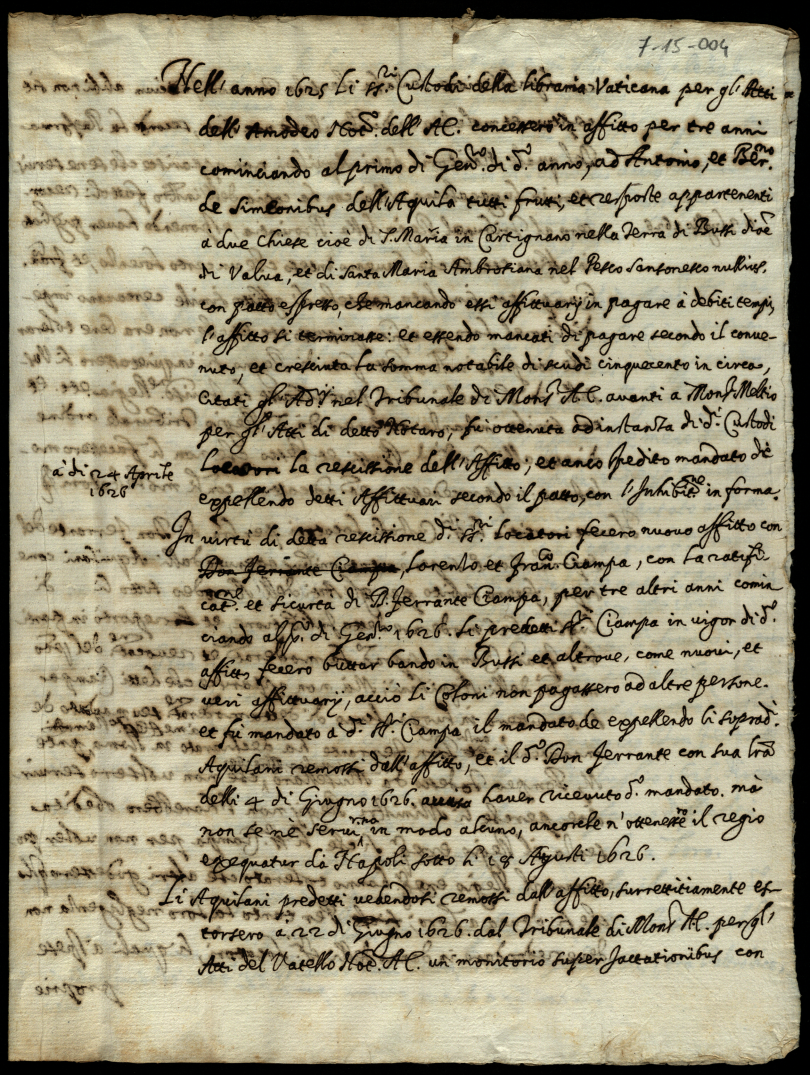 7-15-004
Nell' anno 1625 li SS.ri Custodi della libraria Vaticana per gl' Atti
dell' Amodeo Not.o dell' AC. concessero in affitto per tre anni
cominciando al primo di Gen.ro di d.o anno, ad Antonio, et Ber.no
de Simeonibus dell' Aquila tutti frutti, et risposte appartenenti
à due Chiese cioè di S. Maria in Cartignano nella Terra di Bussi dioc.
di Valva, et di Santa Maria Ambrosiana nel Pesco Sansonesco nullius.
con patto espresso, che mancando essi affittuarij in pagare à debiti tempi,
l' affitto si terminasse: et essendo mancati di pagare secondo il conve-
nuto, et cresciuta la somma notabile di scudi cinquecento in circa,
Citati gl' nel Tribunale di Mons.r AC. avanti a Mons.r Meltio
per gl' Atti di detto Notaro, fù ottenuta ad instanza di d.i Custodi
Locatori la rescissione dell' Affitto; et anco spedito mandato de
à di 24 Aprile
1626
expellendo detti Affittuari secondo il patto, con l' Inhibit.ne in forma.
In virtù di detta rescissione d.i SS.ri Locatori fecero nuovo affitto con
Don Ferrante Ciampa, Lorenso et Fran.co Ciampa, con la ratifi-
cat.ne et sicurtà di D. Ferrante Ciampa, per tre altri anni comin
ciando al p.o di Gen.ro 1626. Li predetti SS.ri Ciampa in vigor di d.o
affitto fecero buttar bando in Bussi et altrove, come nuovi, et
veri affittuarij, acciò li Coloni non pagassero ad altre persone.
et fù mandato à d.i SS.ri Ciampa il mandato de expellendo li soprad.i
Aquilani remossi dall' affitto, et il d.o Don Ferrante con sua l.ra
delli 4 di Giugno 1626. avisa haver ricevuto d.o mandato. mà
non se nè servirno in modo alcuno, ancorche n' ottenessero il regio
exequatur da Napoli sotto li 18 Agusti 1626.
Li Aquilani predetti vedendosi remossi dall' affitto, surrettitiamente es-
torsero à 22 di Giugno 1626. dal Tribunale di Mons.r AC. per gl'
Atti del Vatello Not.o AC. un monitorio super Jactationibus con